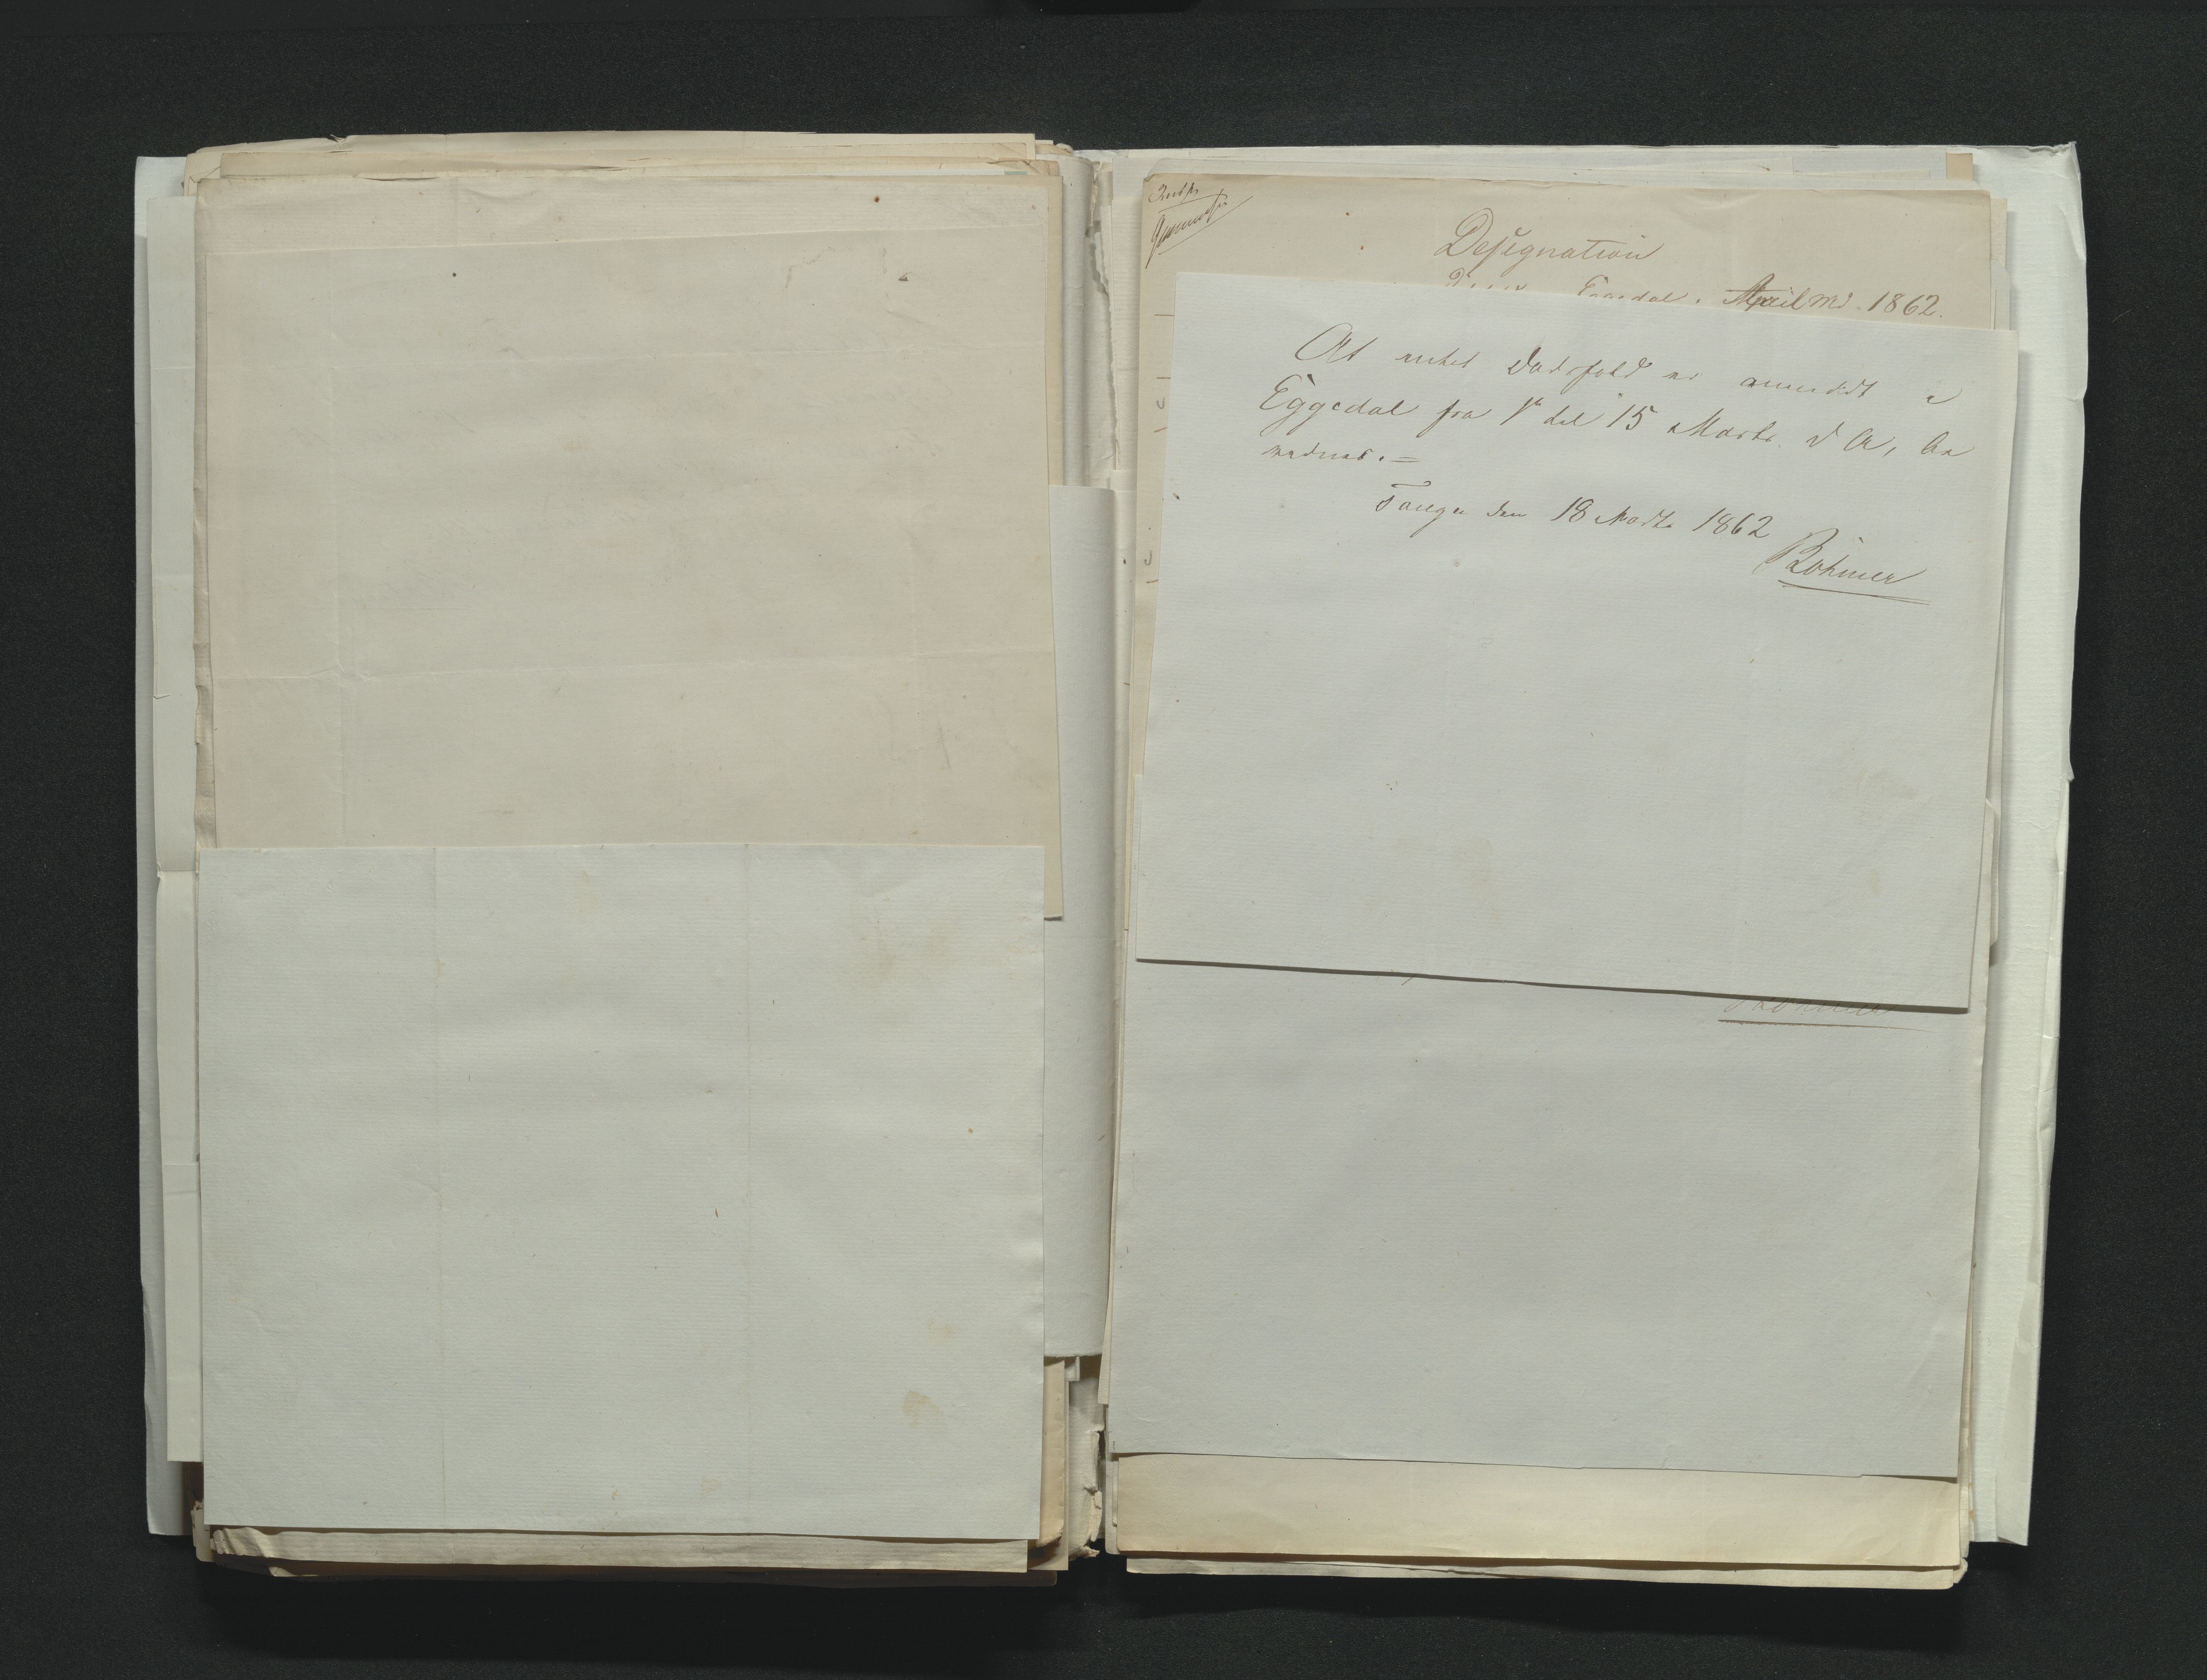 Designation
Eggedal i April Md. 1862.
At intet Dødsfald er anmeldt i
Eggedal fra 1ste til 15 Marts d A, be
vidnes. =
Fange den 18 Marts 1862
Böhmer